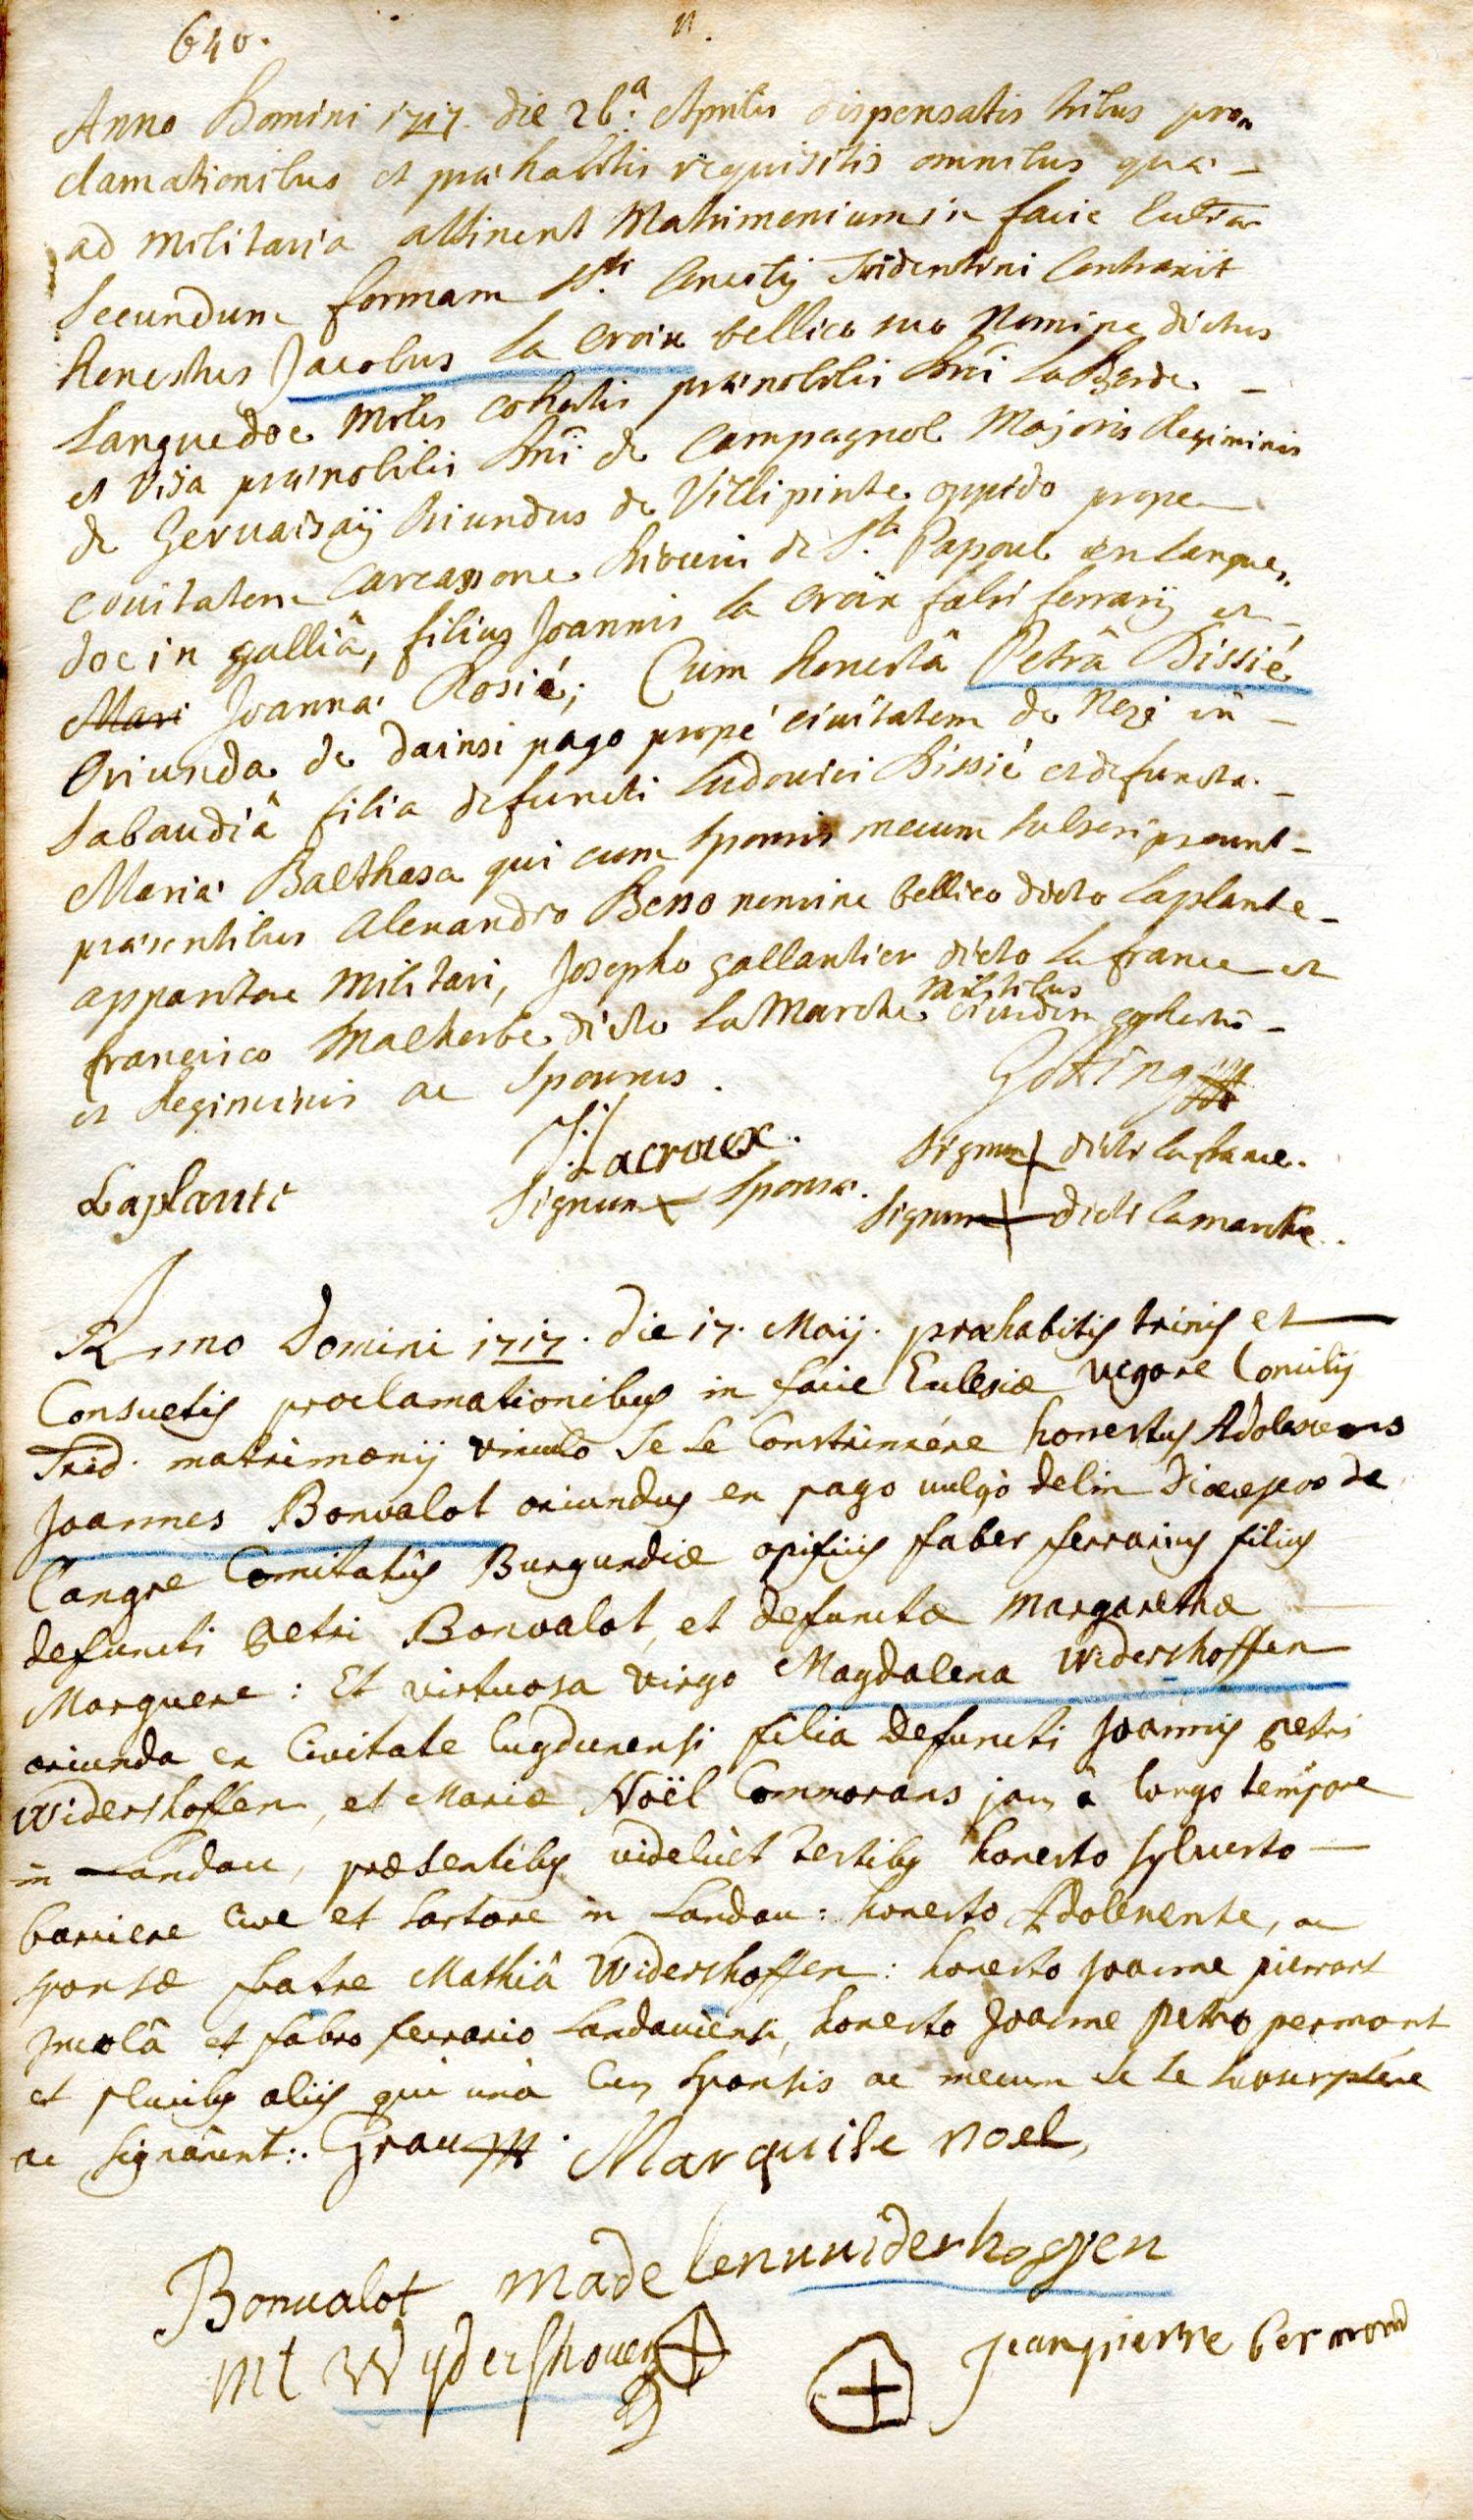 640.
Anno Domini 1717. die 26.a Aprilis dispensatis tribus pro„
clamationibus et præhabitis requisitis omnibus quæ -
ad militaria attinent Matrimonium in facie Ecclesiæ
Secundum formam Sti. Concilij Tridentini Contraxit
honestus Jacobus la croix bellico suo Nomine dictus
Languedoc miles cohortis prænobilis Dni la Borde -
et Visa prænobilis Dni de Campagnol Majoris Regiminis
de Gervaisaÿ Oriundus de Villipinte oppido prope
civitatem Carcassone Diœcesis de St. Papoul en langue„
doc in galliâ, filius Joannis la croix fabri ferrarij et -
Mari Joannæ Rosié; Cum honestâ Petrâ Bissié
Oriunda de dainsi pago propè civitatem de Nezé in -
Sabaudiâ filia defuncti Ludovici Bissié et defunctæ -
Mariæ Balthasa qui cum sponsis mecum subscripserunt -
præsentibus Alexandro Besso nomine bellico dicto laplante -
apparitore Militari, Josepho gallantier dicto la france et
francisco Malherbe dicto la Marche militibus eiusdem cohortis -
et Regiminis ac Sponsus.
Götting
J: Lacroix.
Signum + dicti la france.
Laplante
Signum + Sponsæ.
Signum + dicti lamarche.
Anno Domini 1717. die 17. Maij. præhabitis trinis et
Consuetis proclamationibus in facie Ecclesiæ vigore Concilij
Trid. matrimonij vinculo Se se Constrinxére honestus Adolescens
Joannes Bonvalot oriundus ex pago vulgò delin Diœceseos de
Langre Comitatûs Burgundiæ opificis faber ferrarius filius
defuncti Petri Bonvalot, et defunctæ Margarethæ
Marguere: Et virtuosa virgo Magdalena Widershoffen
oriunda ex Civitate lugdunensi filia Defuncti Joannis Petri
Widershoffen, et Mariæ Noël Commorans jam â longo tempore
in Landau, præsentibus videlicèt testibus honesto sylvestro
barriere Cive et Sartore in Landau: honesto Adolescente, ac
sponsæ fratre Mathiâ Widershoffen: honesto Joanne pierront
Jncolâ et fabro ferrario Landaviensi, honesto Joanne Petro permont
et pluribus aliis qui unà Cum Sponsis ac mecum se se subscripsére
ac signârunt: Grau
Marguite noel,
Bonvalot
madelenwiderhossen
mt Wydershoven
jeanpierre bermond